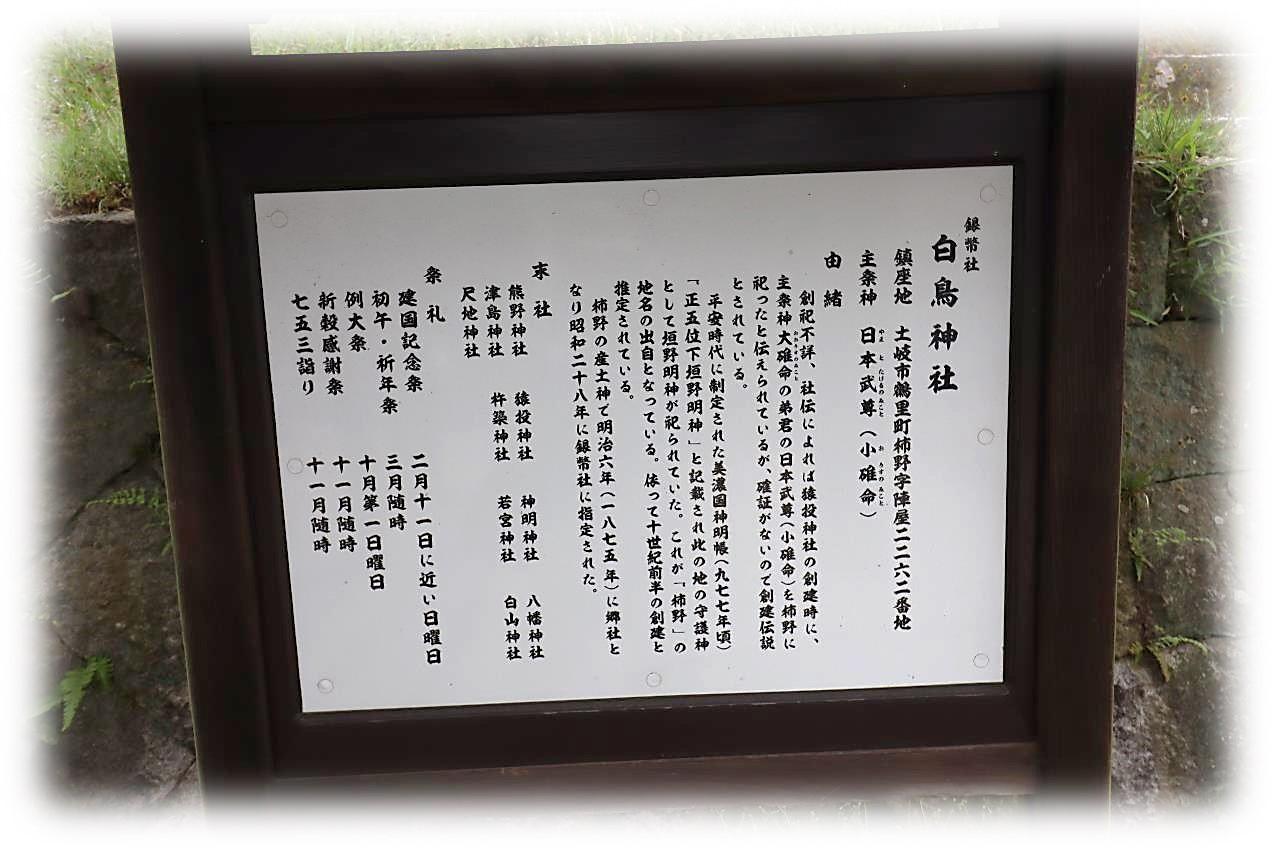 銀幣社
白鳥神社
鎮座地 土岐市鶴里町柿野字陣屋二二六二番地
主祭神 日本武尊(小碓命)
やまとたけるのみこと おうすのみこと
由緒
創祀不詳、社伝によれば猿投神社の創建時に、
主祭神大碓命の弟君の日本武尊(小碓命)を柿野に
おおうすのみこと
祀ったと伝えられているが、確証がないので創建伝説
とされている。
平安時代に制定された美濃国神明帳(九七七年頃)
「正五位下垣野明神」と記載され此の地の守護神
として垣野明神が祀られていた。これが「柿野」の
地名の出自となっている。依って十世紀前半の創建と
推定されている。
柿野の産土神で明治六年(一八七五年)に郷社と
なり昭和二十八年に銀幣社に指定された。
末社
熊野神社 猿投神社 神明神社 八幡神社
津島神社 杵築神社 若宮神社 白山神社
尺地神社
祭礼
建国記念祭 二月十一日に近い日曜日
初午・祈年祭 三月随時
例大祭 十月第一日曜日
新穀感謝祭 十一月随時
七五三詣り 十一月随時